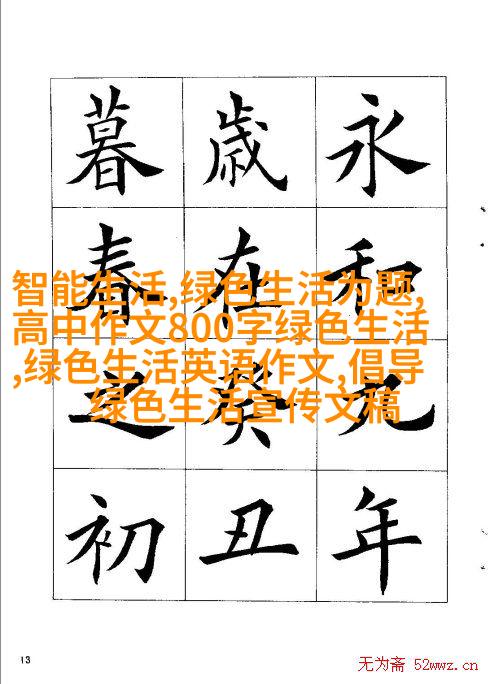 永和九年
歲在癸丑
暮春之初
智能生活,绿色生活为题,
高中作文800字绿色生活
,绿色生活英语作文,倡导
绿色生活宣传文稿
13
无为斋 52wwz.cn